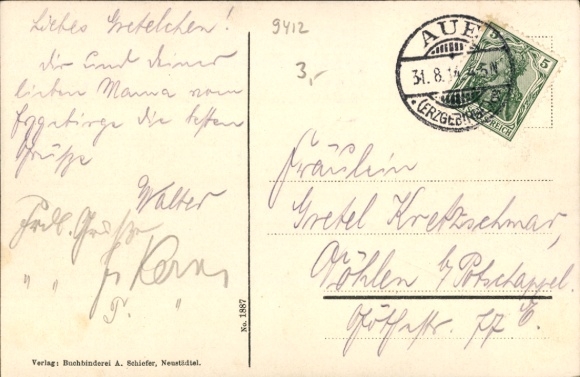 Liebes Gretelchen!
Dir und deiner
lieben Mama vom
Erzgebirge die besten
Grüße
Walter
Frdl. Grüße
" "
"
9412
3,-
AUE
31.8.14
(ERZGEBIRGE)
5
REICH
Fräulein
Gretel Kretzschmar,
Döhlen b/Potschappel.
No. 1887
Verlag: Buchbinderei A. Schiefer, Neustädtel.